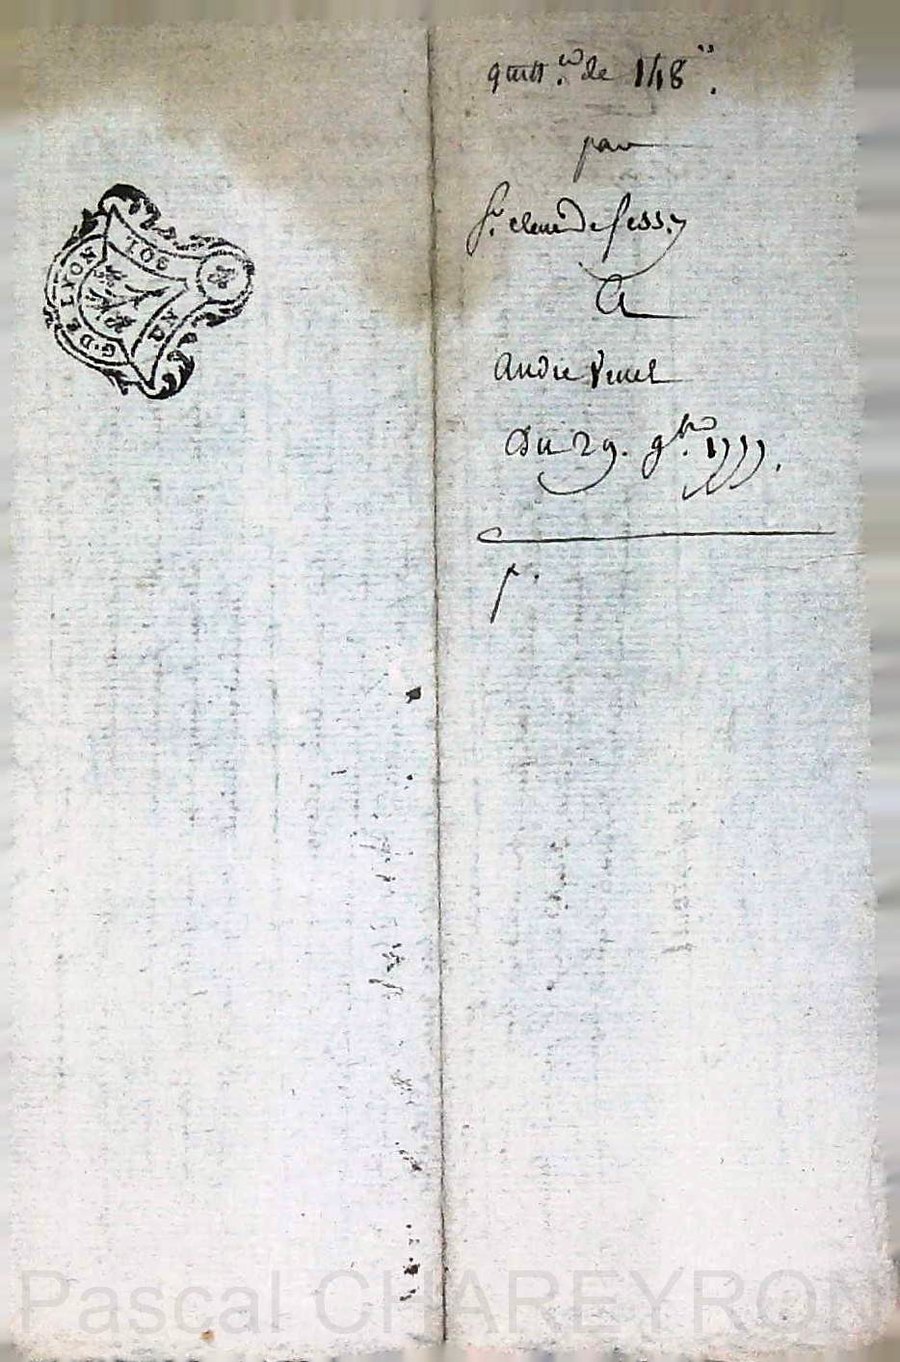 G. DE LYON
UN SOL
quitt.ce de 148.tt
par
Sr. clem De fessy
A
André Vinet
Du 29. 9bre. 1777.
Pascal CHAREYRON